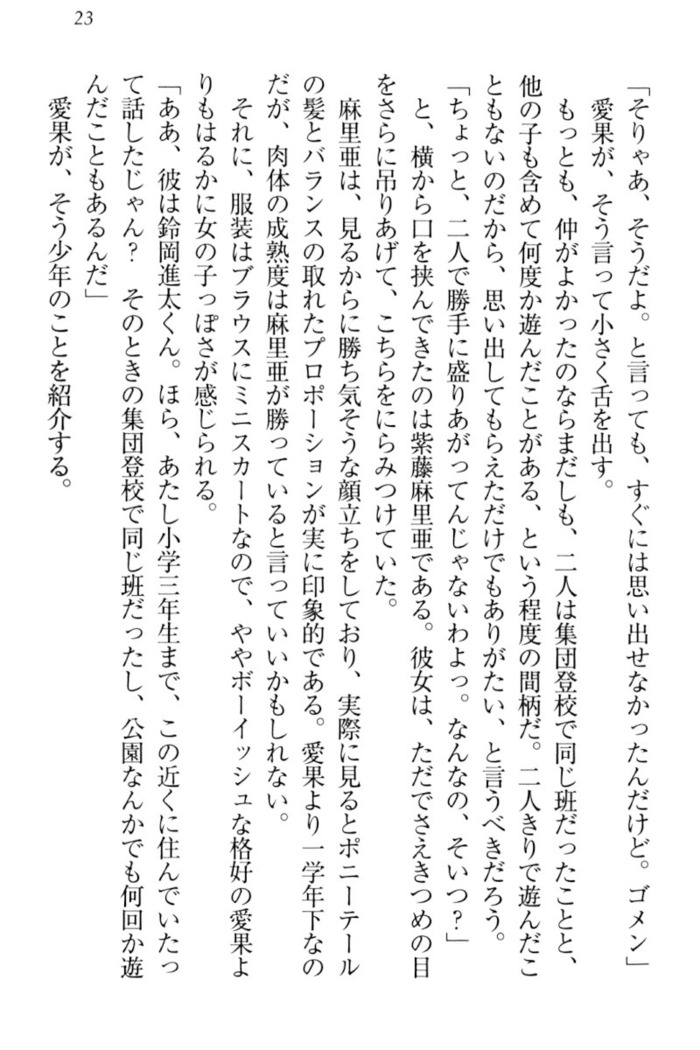 23
「そりゃあ、そうだよ。と言っても、すぐには思い出せなかったんだけど。ゴメン」
愛果が、そう言って小さく舌を出す。
もっとも、仲がよかったのならまだしも、二人は集団登校で同じ班だったことと、
他の子も含めて何度か遊んだことがある、という程度の間柄だ。二人きりで遊んだこ
ともないのだから、思い出してもらえただけでもありがたい、と言うべきだろう。
「ちょっと、二人で勝手に盛りあがってんじゃないわよっ。なんなの、そいつ？」
と、横から口を挟んできたのは紫藤麻里亜である。彼女は、ただでさえきつめの目
をさらに吊りあげて、こちらをにらみつけていた。
麻里亜は、見るからに勝ち気そうな顔立ちをしており、実際に見るとポニーテール
の髪とバランスの取れたプロポーションが実に印象的である。愛果より一学年下なの
だが、肉体の成熟度は麻里亜が勝っていると言っていいかもしれない。
それに、服装はブラウスにミニスカートなので、ややボーイッシュな格好の愛果よ
りもはるかに女の子っぽさが感じられる。
「ああ、彼は鈴岡進太くん。ほら、あたし小学三年生まで、この近くに住んでいたっ
て話したじゃん？　そのときの集団登校で同じ班だったし、公園なんかでも何回か遊
んだこともあるんだ」
愛果が、そう少年のことを紹介する。